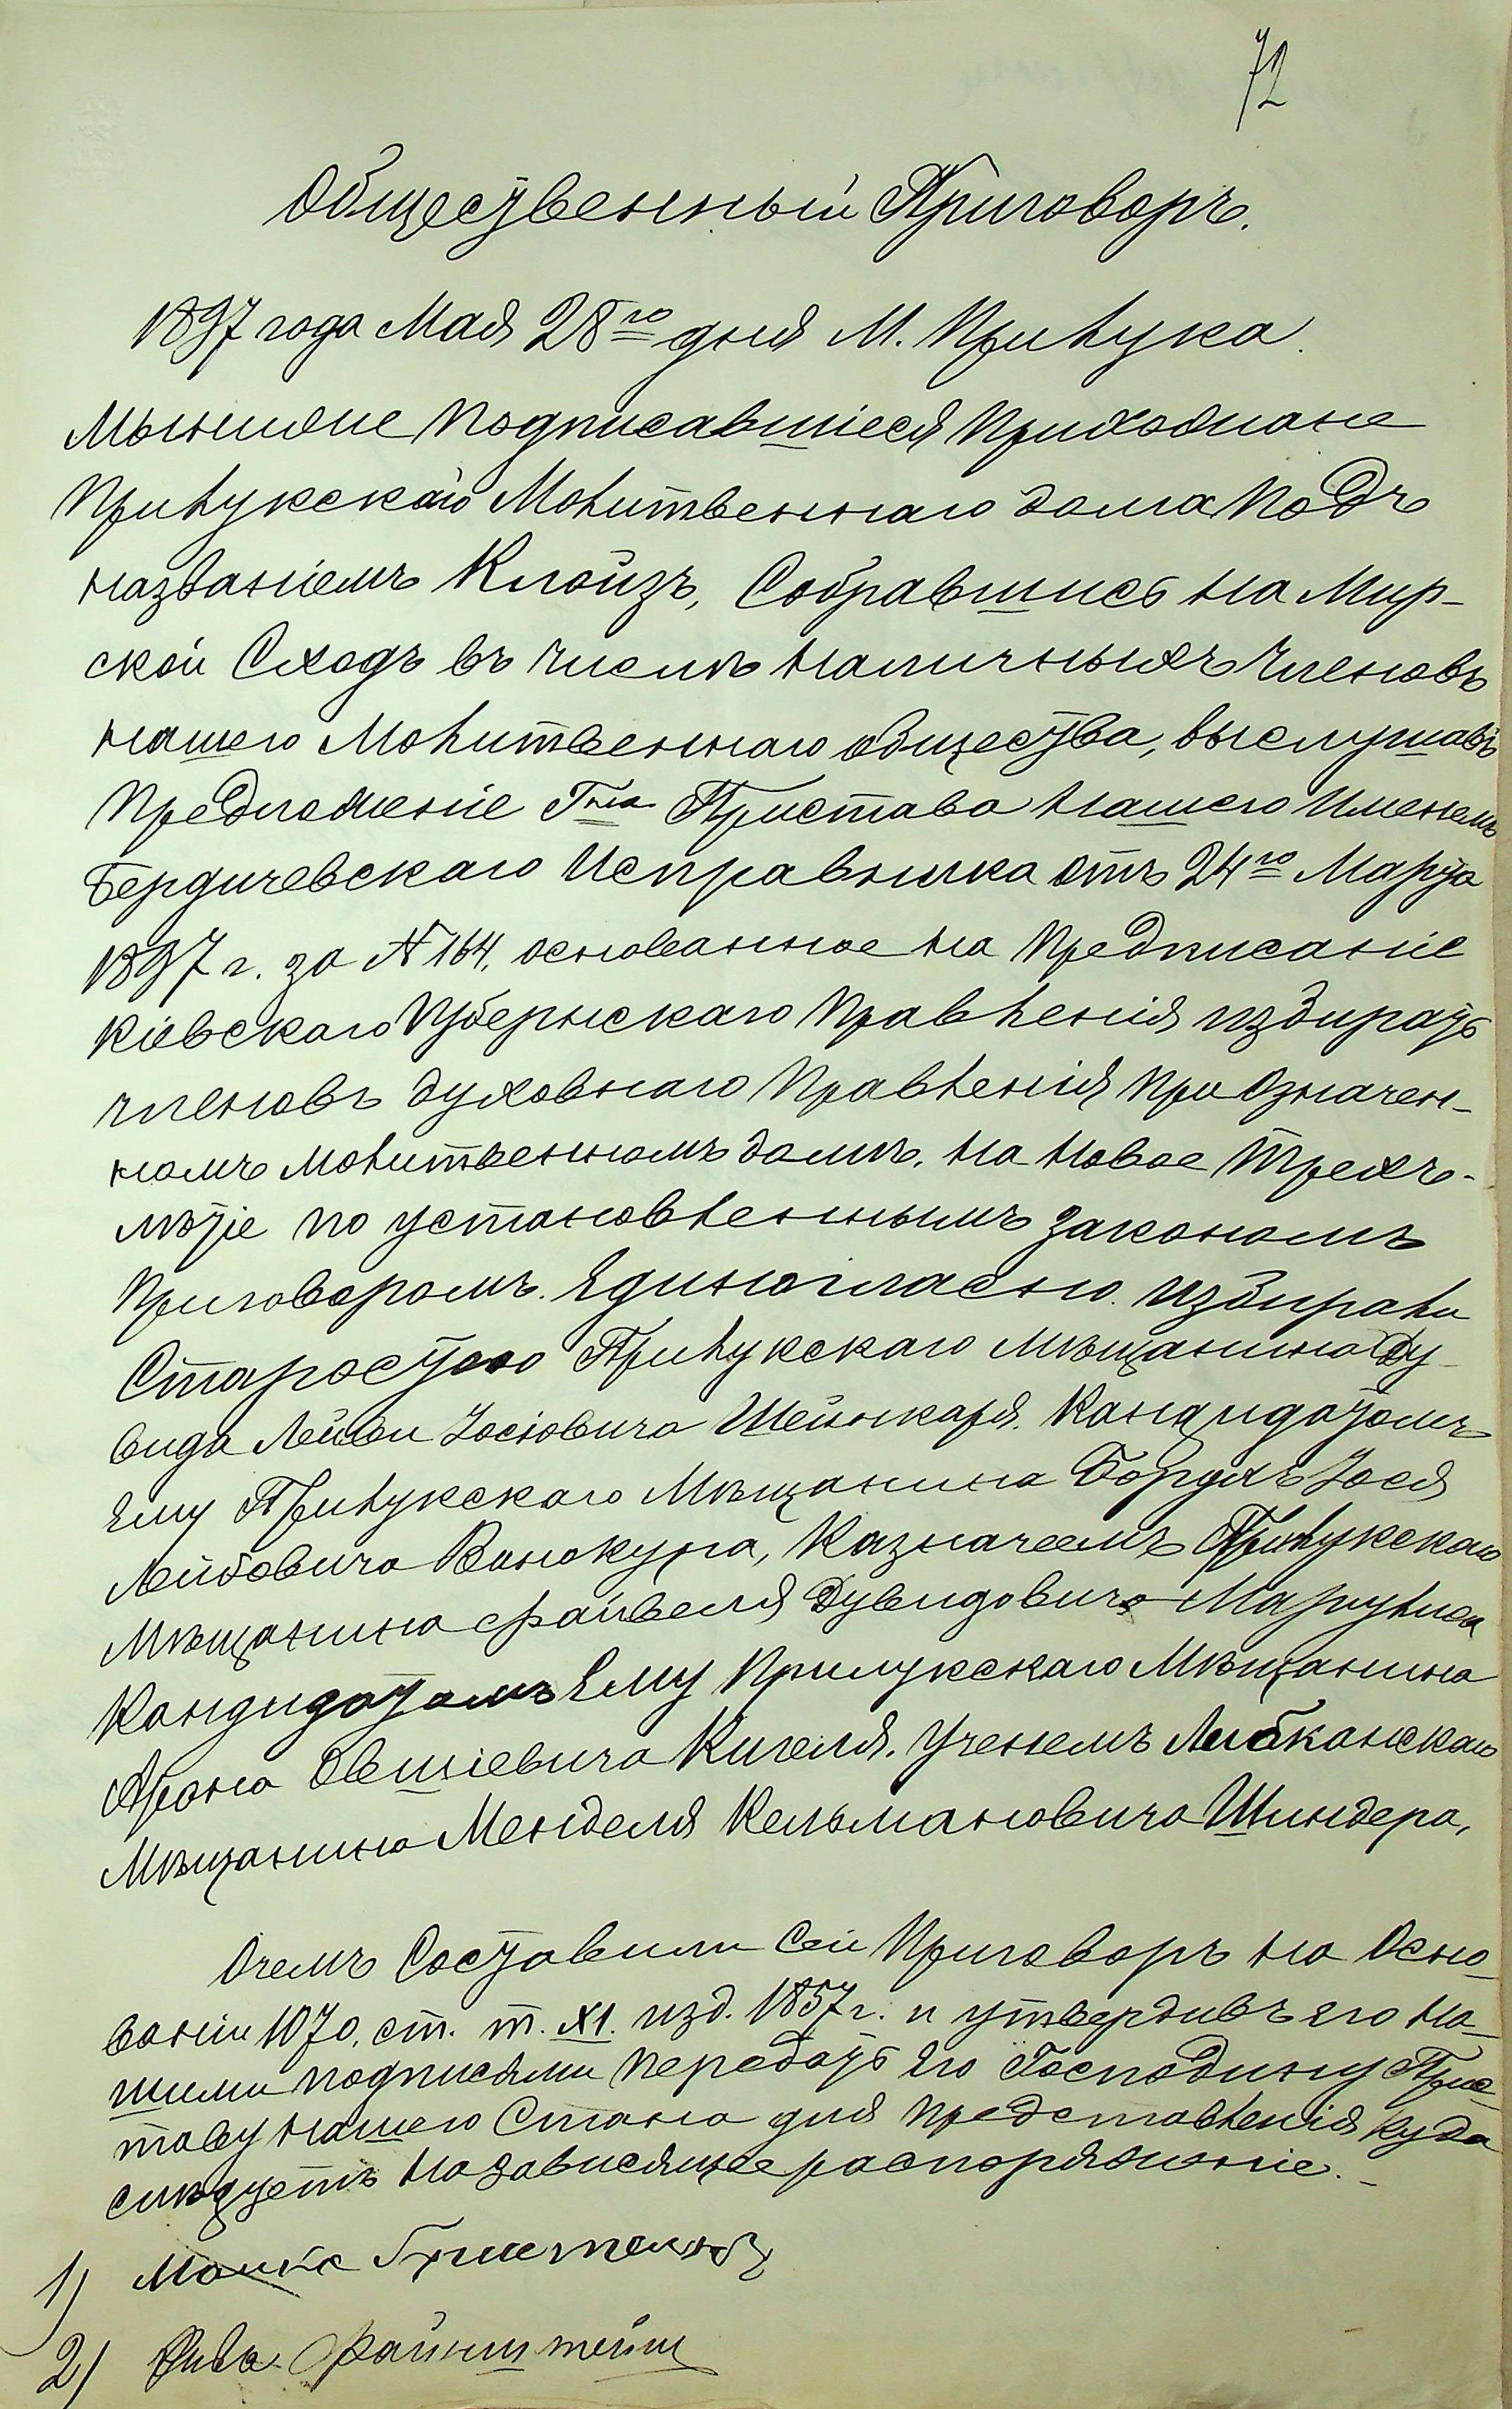 72
Общественный Приговоръ.
1897 года Мая 28го дня М. Прилука.
Мынижe Подписавшіеся Прихожане
Прилукскаго Молитвеннаго дома Подъ
названіемъ Клойзъ, Собравшись на Мир-
ской Сходъ въ числѣ наличныхъ членовъ
нашего Молитвеннаго общества, выслушавъ
Предложеніе Гна Пристава нашего Именемъ
Бердичевскаго Исправника отъ 24го Марта
1897 г. за № 164, основанное на Предписаніе
Кіевскаго Губернскаго Правленія избирать
членовъ духовнаго Правленія при Означен-
номъ молитвенномъ домѣ, на новое Трехъ-
лѣтіе по установленнымъ закономъ
Приговоромъ. Единогласно избирали
Старостою Прилукскаго мѣщанина Ду-
вида Лейви Іосіовича Шейнкаря. Кандидатомъ
Ему Прилукскаго Мѣщанина Борухъ Іося
Лейбовича Винокура, Казначеемъ Прилукскаго
Мѣщанина Файвеля Дувидовича
Кандидатомъ Ему Прилукскаго Мѣщанина
Арона Овшіевича Кигеля. Ученемъ
Мѣщанина Менделя Кельмановича Шиндера,
Очемъ Составили Сей Приговоръ на Осно-
ваніи 1070, ст. т. XI. изд. 1857 г. и утвердивъ его на-
шими подписями Передать его Господину Прис-
таву нашего Стана для представленія куда
слѣдуетъ на зависящее распоряженіе.-
1)
2) Файнштейн